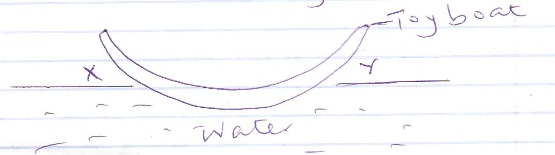 Toy boat
X
Y
Water